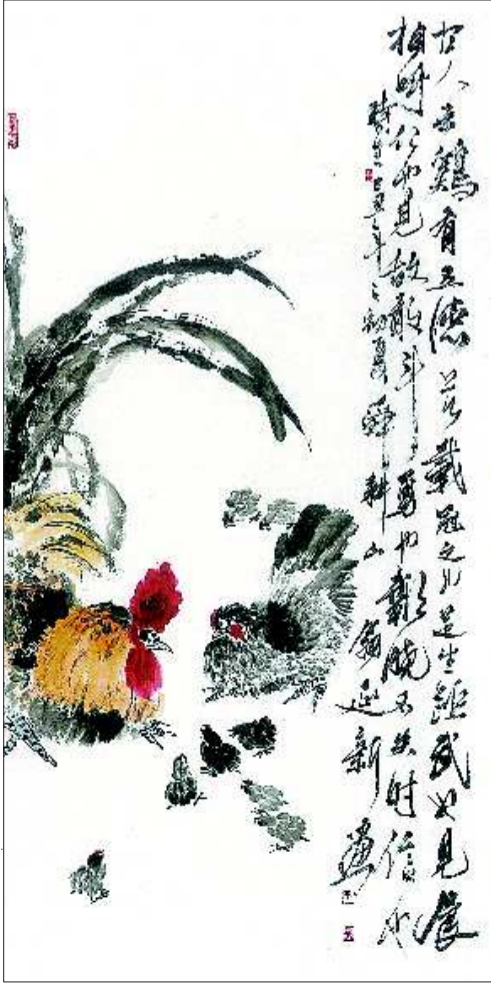 古人云鷄有五德首戴冠文也足生距武也見食
相呼仁也見敌敢斗勇也報晓不失时信也
時在己丑年之初夏舜耕山新畫